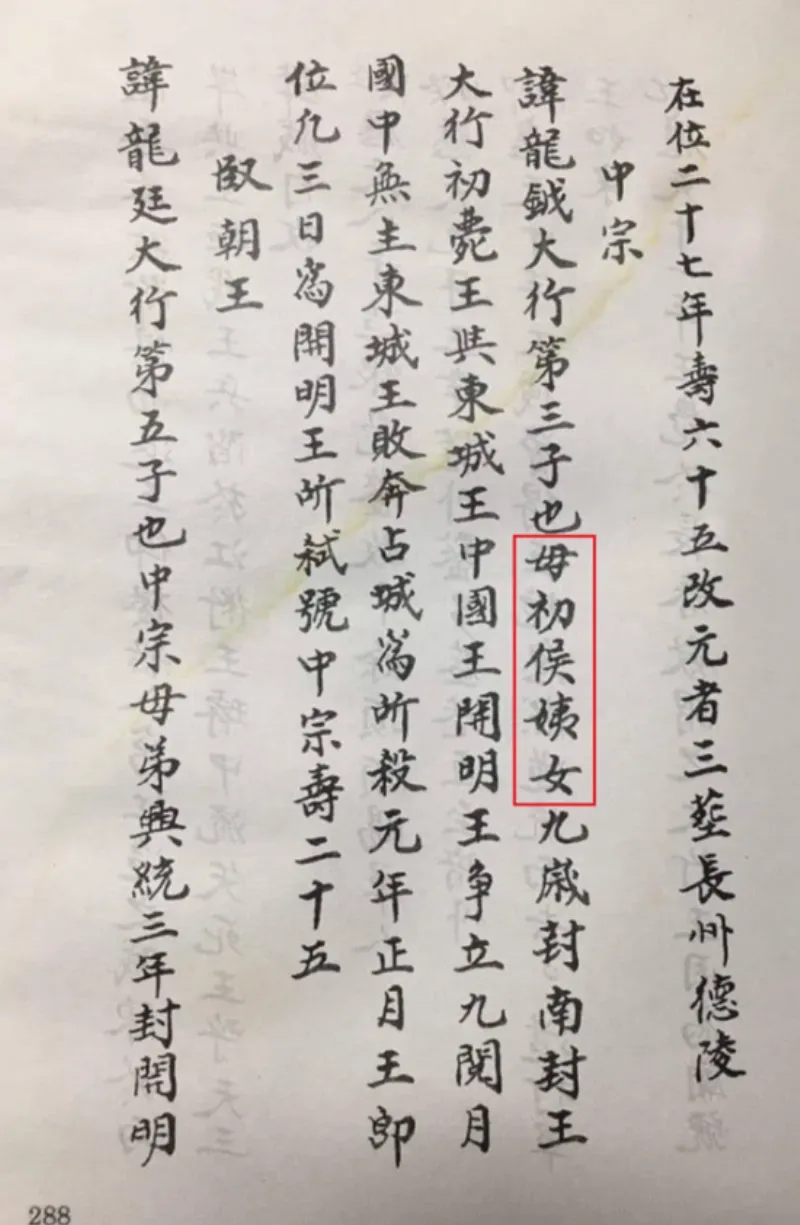 在位二十七年壽六十五改元者三塟長州德陵
中宗
諱龍鉞大行第三子也毋初侯姨女九歳封南封王
大行初薨王與東城王中國王開明王争立九閱月
國中無主東城王敗奔占城爲所殺元年正月王即
位凢三日爲開明王所弑號中宗壽二十五
臥朝王
諱龍廷大行第五子也中宗毋弟興統三年封開明
288